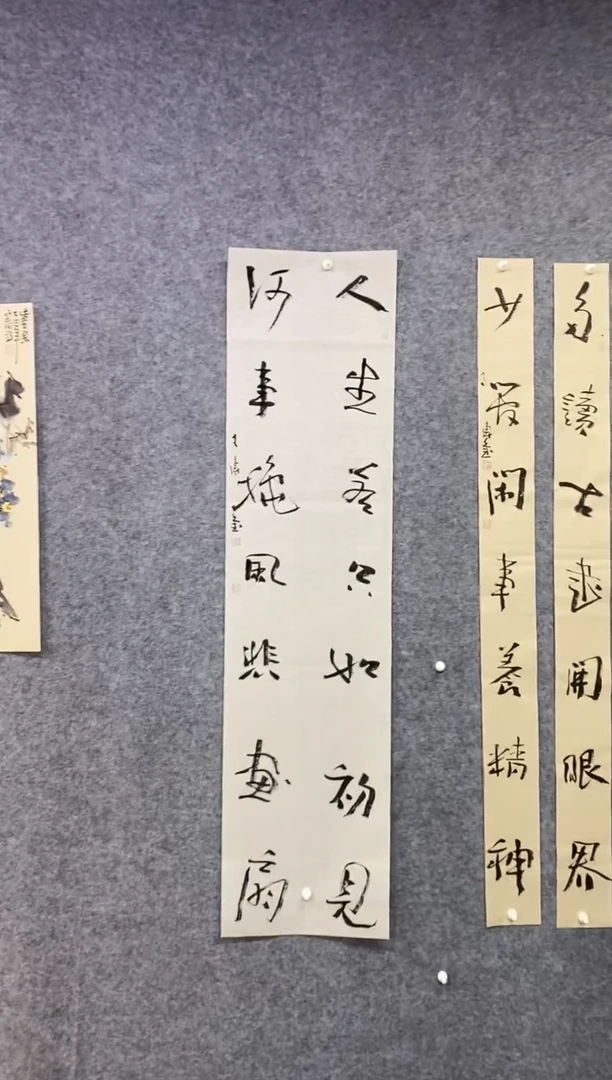 多讀古書開眼界
少管閑事養精神
人生若只如初見
何事穐風悲畫扇